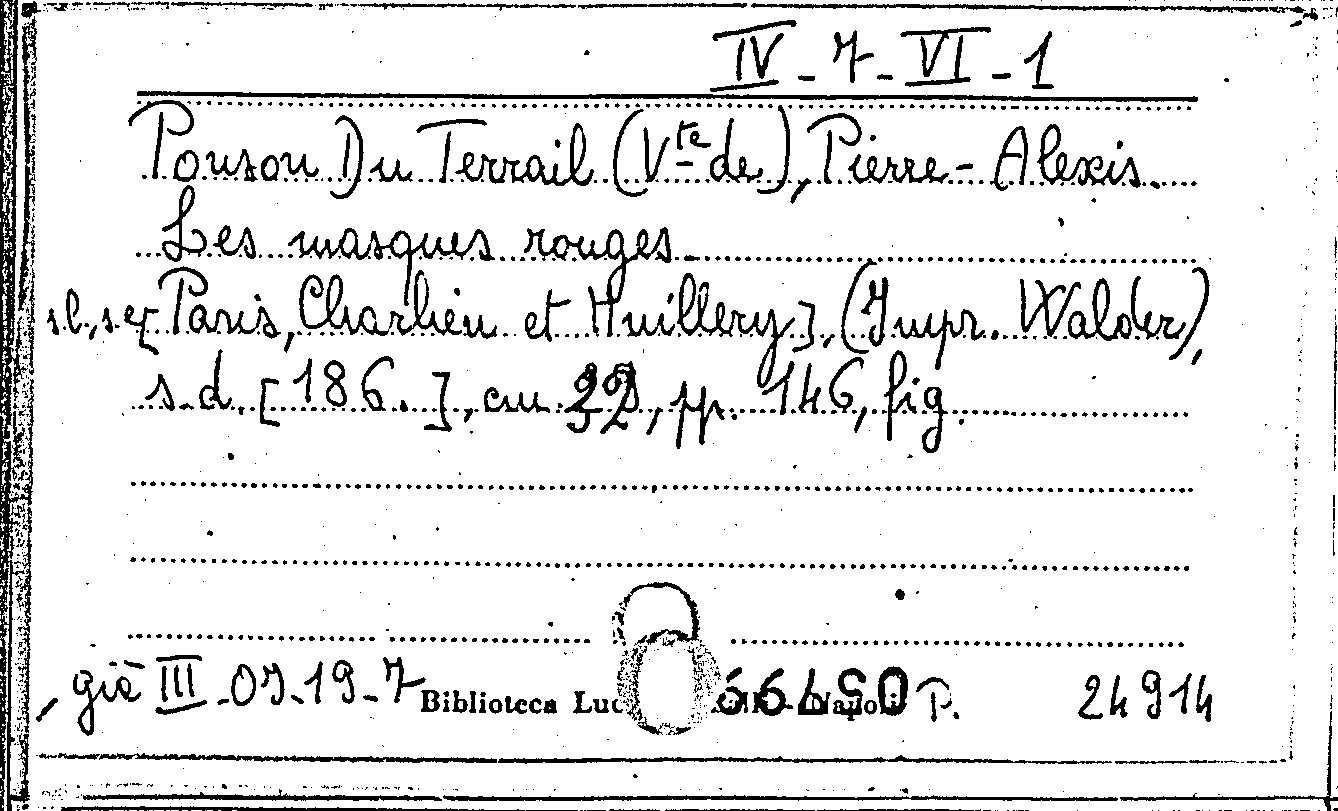 IV-7-VI-1
Ponson Du Terrail (Vte de), Pierre-Alexis.
Les masques rouges.
s.l., s.e. [Paris, Charlieu et Huillery], (Impr. Walder),
s.d. [186.], cm. 32, pp. 146, fig.
già III-07-19-7 Biblioteca P. 24914